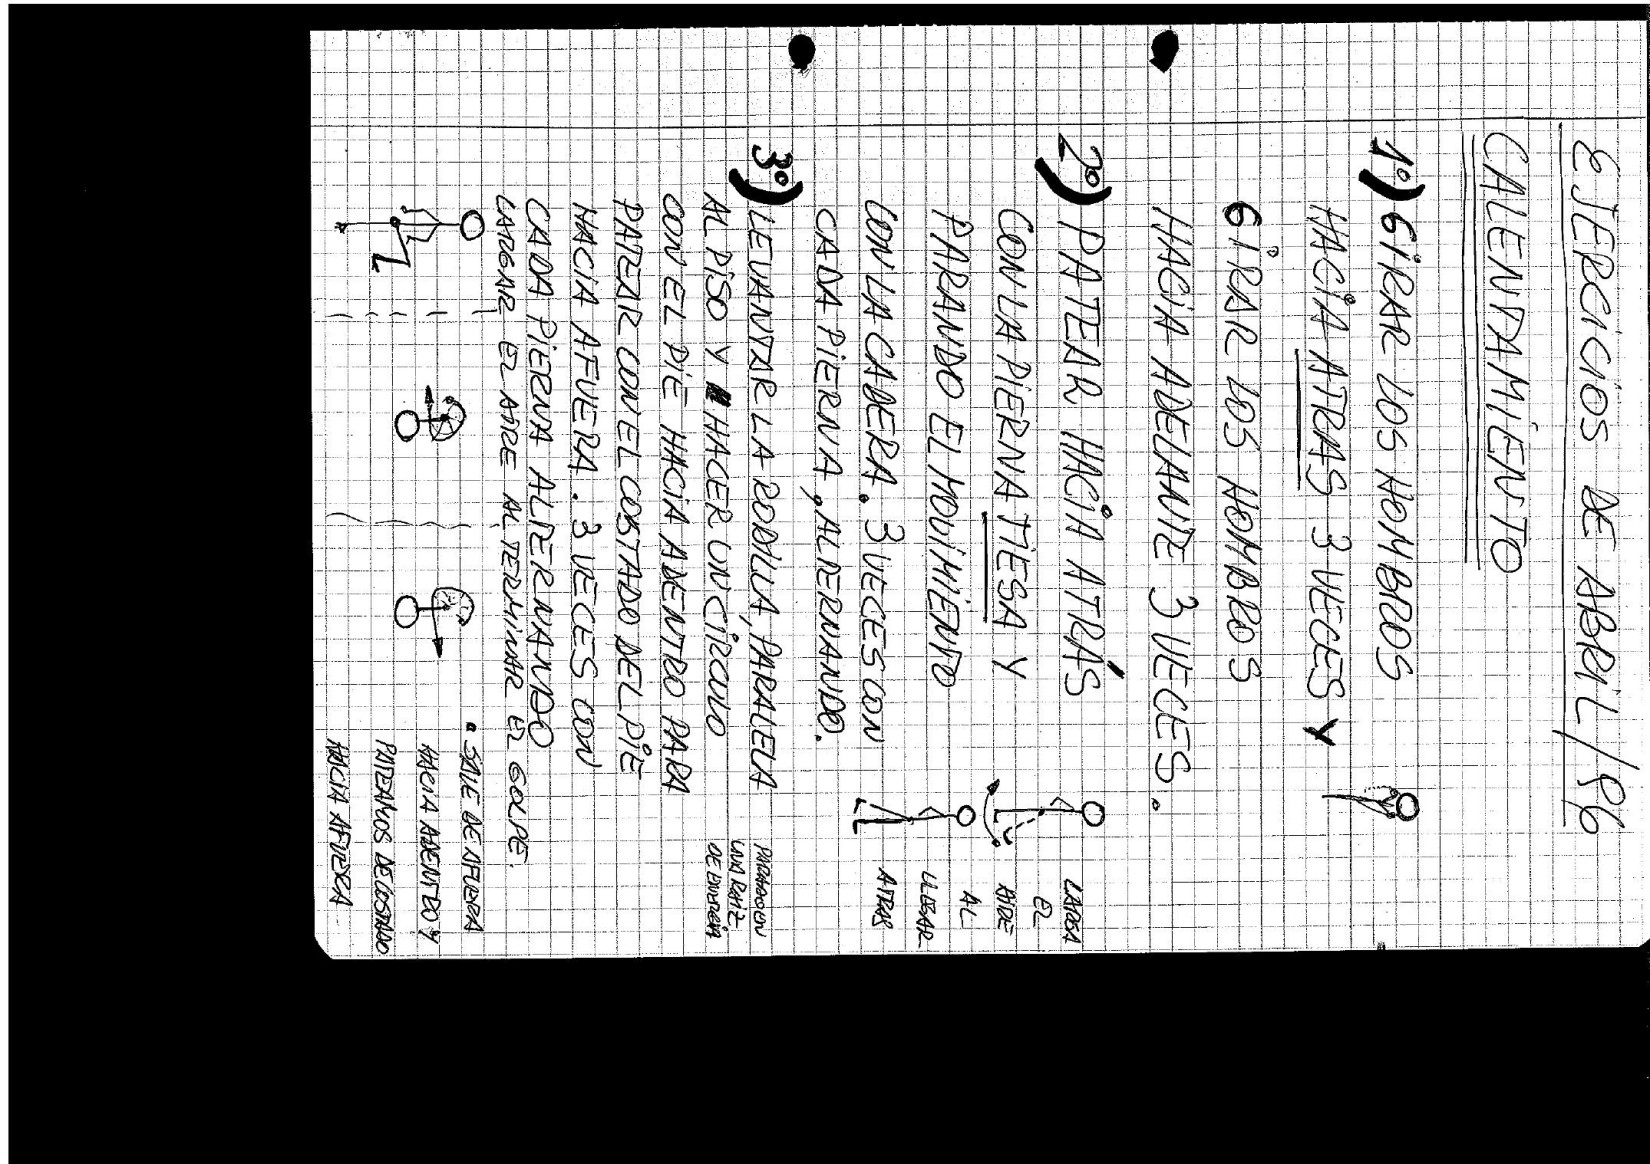 EJERCICIOS DE ABRIL/86
CALENTAMIENTO
1º) GIRAR LOS HOMBROS
HACIA ATRAS 3 VECES Y
GIRAR LOS HOMBROS
HACIA ADELANTE 3 VECES.
2º) PATEAR HACIA ATRÁS
CON LA PIERNA TIESA Y
PARANDO EL MOVIMIENTO
CON LA CADERA. 3 VECES CON
CADA PIERNA, ALTERNANDO.
LARGA
EL
AIRE
AL
LLEGAR
ATRAS
3º) LEVANTAR LA RODILLA, PARALELA
AL PISO Y HACER UN CÍRCULO
CON EL PIE HACIA ADENTRO PARA
PATEAR CON EL COSTADO DEL PIE
HACIA AFUERA. 3 VECES CON
CADA PIERNA ALTERNANDO
LARGAR EL AIRE AL TERMINAR EL GOLPE.
PARADO EN
UNA RAIZ
DE ENERGIA
SALE DE AFUERA
HACIA ADENTRO Y
PATEAMOS DE COSTADO
HACIA AFUERA